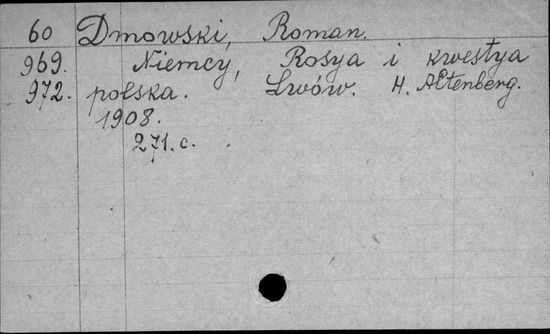 60 Dmowski, Roman.
969. Niemcy, Rosya i kwestya
972. polska. Lwów. H. Altenberg.
1908.
271.c.